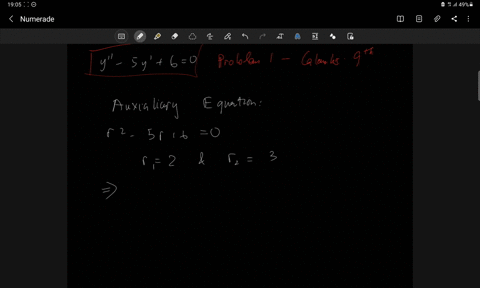 19:05
49%
Numerade
y'' - 5y' + 6 = 0 Problem 1 - Calculus 9th
Auxialiary Equation:
r² - 5r + 6 = 0
r₁ = 2 & r₂ = 3
⇒